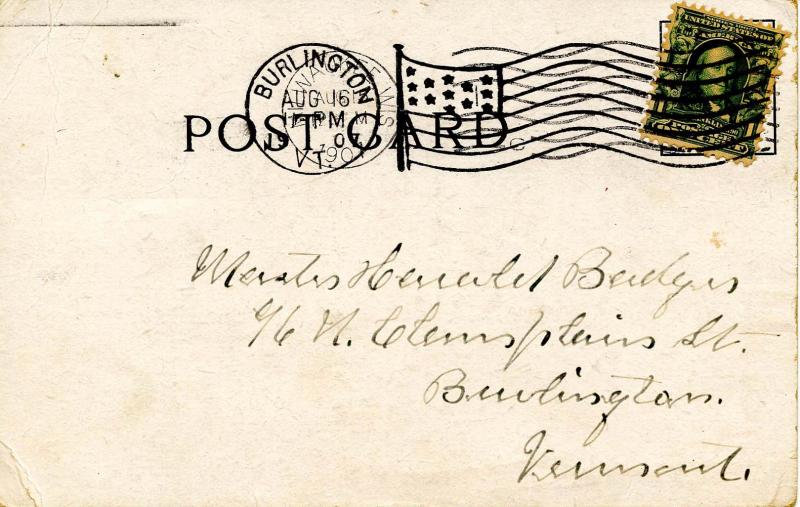 BURLINGTON
AUG 16
PM
07
VT.
POST CARD
UNITED STATES OF
AMERICA
Master Harold Badger
96 N. Champlain St.
Burlington.
Vermont.